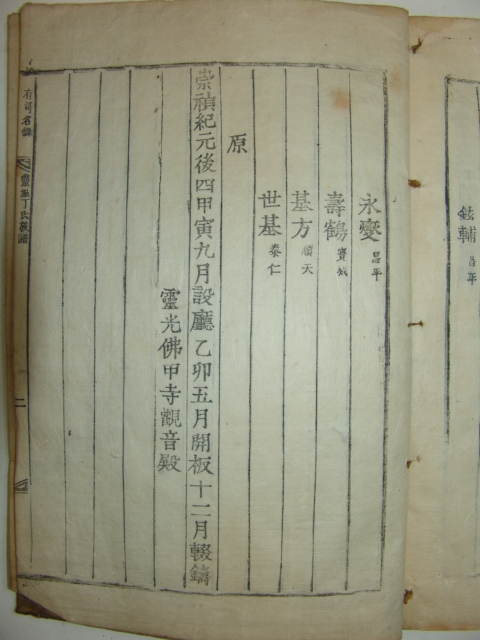 鉉輔 昌平
永燮 昌平
壽鶴 寶城
基方 順天
世基 泰仁
原
崇禎紀元後四甲寅九月設廳乙卯五月開板十二月輟鑄
靈光佛甲寺觀音殿
有司名錄
靈光丁氏族譜
二